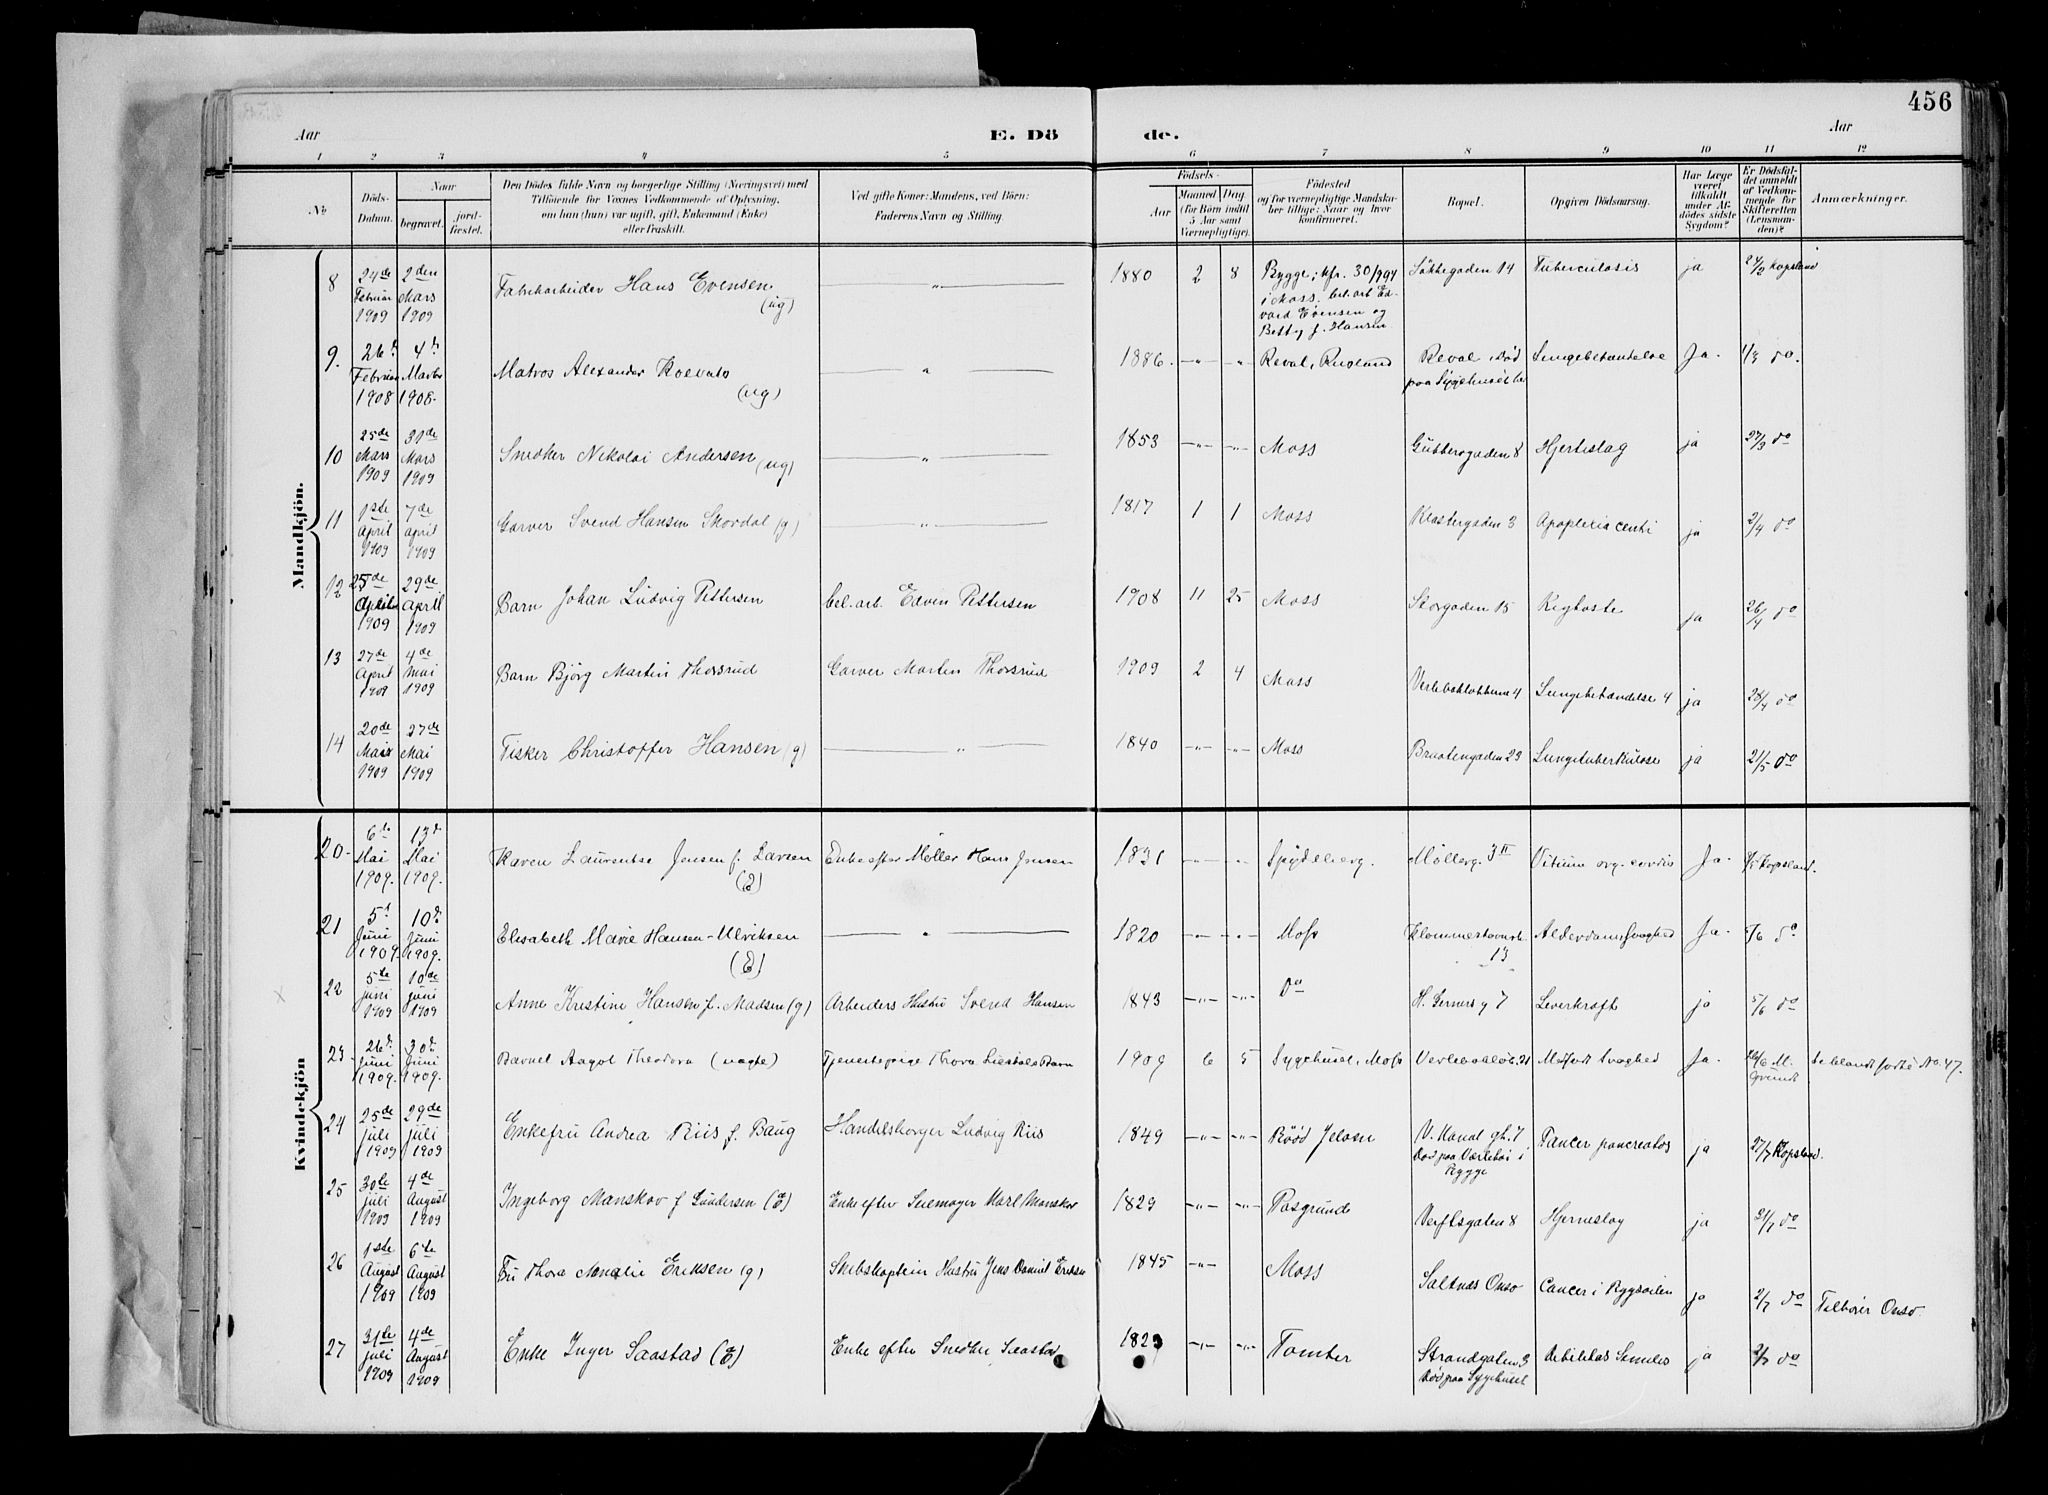 456
Aar
E. Dö
de.
Aar
1 2 3 4 5 6 7 8 9 10 11 12
No
Döds-Datum.
Naar
begravet.
jord-fæstet.
Den Dödes fulde Navn og borgerlige Stilling (Næringsvei) med
Tilföiende for Voxnes Vedkommende af Oplysning,
om han (hun) var ugift, gift, Enkemand (Enke)
eller fraskilt.
Ved gifte Koner: Mandens, ved Börn:
Faderens Navn og Stilling.
Födsels-
Aar
Maaned
Dag
(for Börn indtil
5 Aar samt
Værnepligtige).
Födested
og for værnepligtige Mandska-
ber tillige: Naar og hvor
konfirmeret.
Bopæl.
Opgiven Dödsaarsag.
Har Læge
været
tilkaldt
under Af-
dödes sidste
Sygdom?
Er Dödsfal-
det anmeldt
af Vedkom-
mende for
Skifteretten
(Lensman-
den)?
Anmærkninger.
Mandkjön.
8 24de Februar 1909 2den Mars 1909 Fabrikarbeider Hans Evensen (ug) 1880 2 8 Rygge; kfr. 30/9 94 i Moss. bel. arb Ed-vard Evensen og Betty f. Hansen Tuberculosis ja 24/2 Kopsland
9. 26d Februar 1908 4d 1908. Matros Alexander (ug) 1886. Reval, Rusland Reval, død paa Sygehuset her Lungebetændelse Ja. 1/3 do.
10 25de Mars 1909 30de Mars 1909 Snedker Nikolai Andersen (ug) 1853 Moss Hjerteslag ja 27/3 do
11 1ste April 1909 7de April 1909 Garver Svend Hansen Skovdal (g) 1817 1 1 Moss Klostergaden 3 Apoplexia ja 2/4 do
12 25de April 1909 29de April 1909 Barn Johan Ludvig Pettersen bel. arb. Edvin Pettersen 1908 11 25 Moss Storgaden 15 Kighoste ja 26/4 do
13 27de April 1909 4de Mai 1909 Barn Bjørg Martin Thorsrud Garver Morten Thorsrud 1909 2 4 Moss Lungebetændelse ja 28/4 do
14 20de Mai 1909 27de Mai 1909 Fisker Christoffer Hansen (g) 1840 Moss Braatengaden 23 Lungetuberkulose ja 21/5 do
Kvindekjön
20. 6te Mai 1909. 13d Mai 1909. Karen Laurentse Jensen f. Larsen (E) Enke efter Møller Hans Jensen 1831 Spydeberg. Møllerg. 3 II Vitium org. cordis Ja. Kopsland.
21 5t Juni 1909. 10d Juni 1909. Elisabeth Marie Hansen-Ulriksen (E) 1820 Moss 13 Alderdomssvaghed Ja. 5/6 do
22 5te juni 1909 10de juni 1909 Anne Kristine Hansen f. Madsen (g) Arbeiders Hustru Svend Hansen 1843 do H. Gerners g 7 Leverkræft ja 5/6 do
23. 26d. Juni 1909. 30d. Juni 1909. Barnet Aagot Theodora (uægte) Tjenestepige Thora Barn 1909 6 5 Sygehuset, Moss Medfødt Svaghed Ja. No. 47.
24 25de juli 1909 29de juli 1909 Enkefru Andrea Riis f. Baug Handelsborger Ludvig Riis 1849 Rød Jeløen V. Kanal g. 7 Død paa Værlebøi i Rygge Cancer pancreatis ja 27/7 Kopsland.
25 30te juli 1909 4de August 1909 Ingeborg Manskov f Gundersen (E) Enke efter Seilmager Karl Manskov 1829 Porsgrund Verftsgaten 8 Hjerneslag ja 31/7 do
26 1ste August 1909 6te August 1909 Fru Thora Amalie Eriksen (g) Skibskaptein Hustru Jens Daniel Eriksen 1845 Moss Saltnæs Onsø Cancer i Rygsøilen ja 2/7 do Tilhører Onsø.
27 31te juli 1909 4de August 1909 Enke Inger Saastad (E) Enke efter Snedker Saastad 1823 Tomter Strandgaten 3 Død paa Sygehuset Debilitas Senilis ja 2/7 do